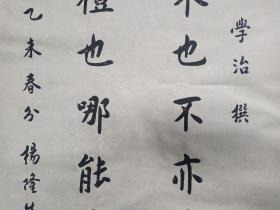 學治撰
也不亦
也哪能
乙未春分楊隆